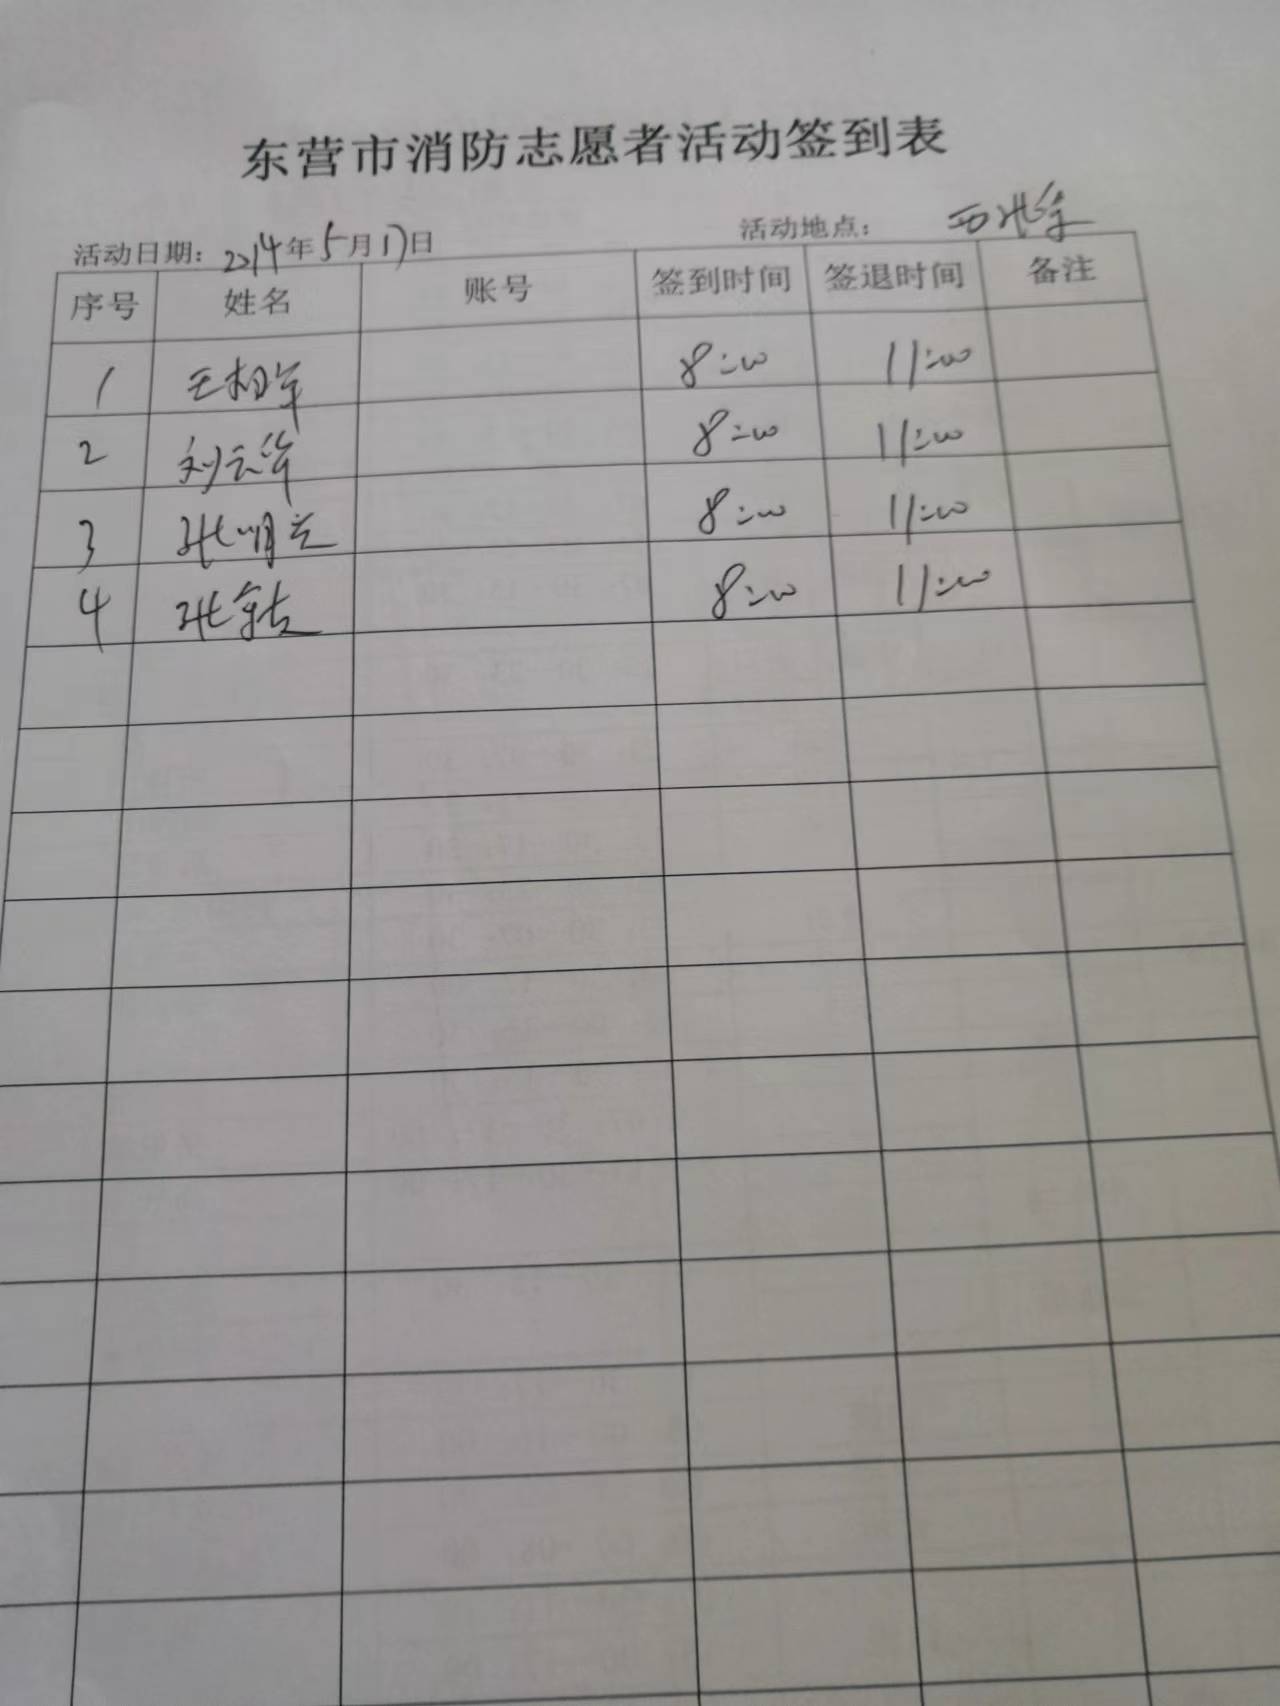 东营市消防志愿者活动签到表
活动日期：2014年5月17日 活动地点：
序号 姓名 账号 签到时间 签退时间 备注
1 王相军 8:00 11:00
2 刘云华 8:00 11:00
3 张明 8:00 11:00
4 张 8:00 11:00